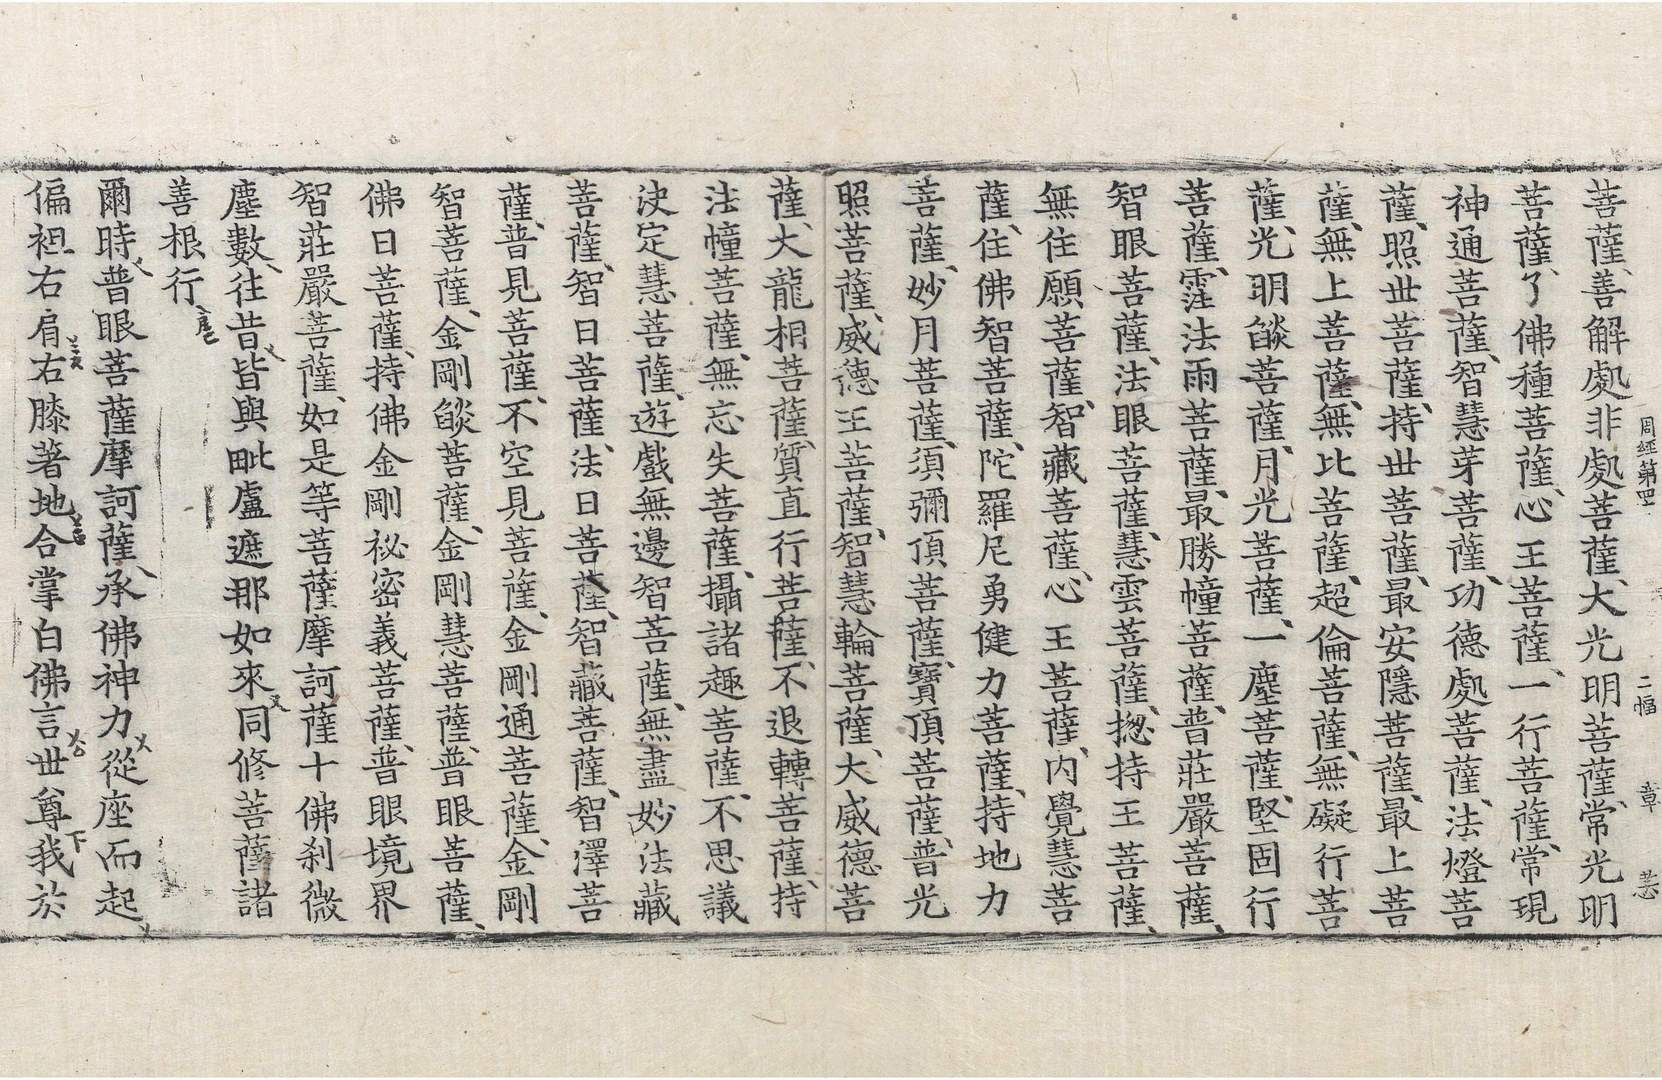 周經第四 二幅 章
菩薩善解處非處菩薩大光明菩薩常光明
菩薩了佛種菩薩心王菩薩一行菩薩常現
神通菩薩智慧芽菩薩功德處菩薩法燈菩
薩照世菩薩持世菩薩最安隱菩薩最上菩
薩無上菩薩無比菩薩超倫菩薩無礙行菩
薩光明㷔菩薩月光菩薩一塵菩薩堅固行
菩薩霔法雨菩薩最勝幢菩薩普莊嚴菩薩
智眼菩薩法眼菩薩慧雲菩薩揔持王菩薩
無住願菩薩智藏菩薩心王菩薩內覺慧菩
薩住佛智菩薩陀羅尼勇健力菩薩持地力
菩薩妙月菩薩須彌頂菩薩寶頂菩薩普光
照菩薩威德王菩薩智慧輪菩薩大威德菩
薩大龍相菩薩質直行菩薩不退轉菩薩持
法幢菩薩無忘失菩薩攝諸趣菩薩不思議
決定慧菩薩遊戲無邊智菩薩無盡妙法藏
菩薩智日菩薩法日菩薩智藏菩薩智澤菩
薩普見菩薩不空見菩薩金剛通菩薩金剛
智菩薩金剛㷔菩薩金剛慧菩薩普眼菩薩
佛日菩薩持佛金剛祕密義菩薩普眼境界
智莊嚴菩薩如是等菩薩摩訶薩十佛刹微
塵數往昔皆與毗盧遮那如來同修菩薩諸
善根行
爾時普眼菩薩摩訶薩承佛神力從座而起
偏袒右肩右膝著地合掌白佛言世尊我於